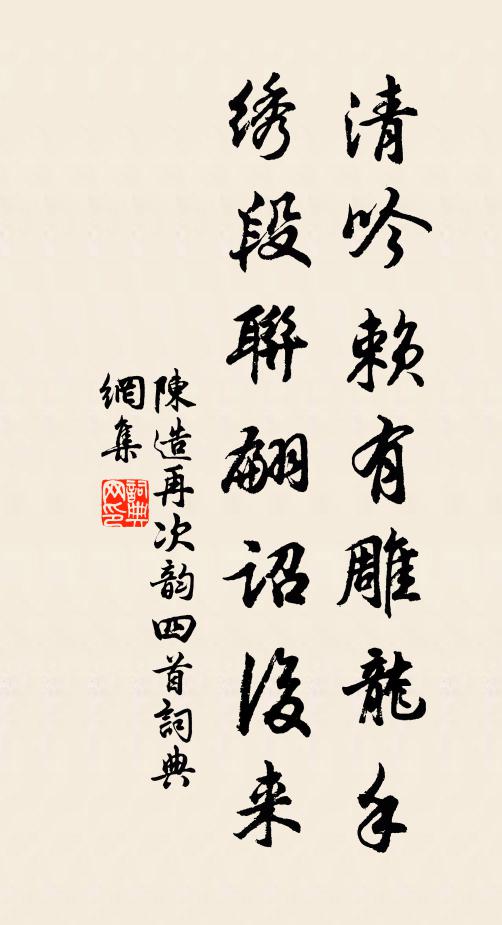 清吟赖有雕龍手
绣段聯翩詔後来
陳造再次韵四首詞典
網集
詞典網印